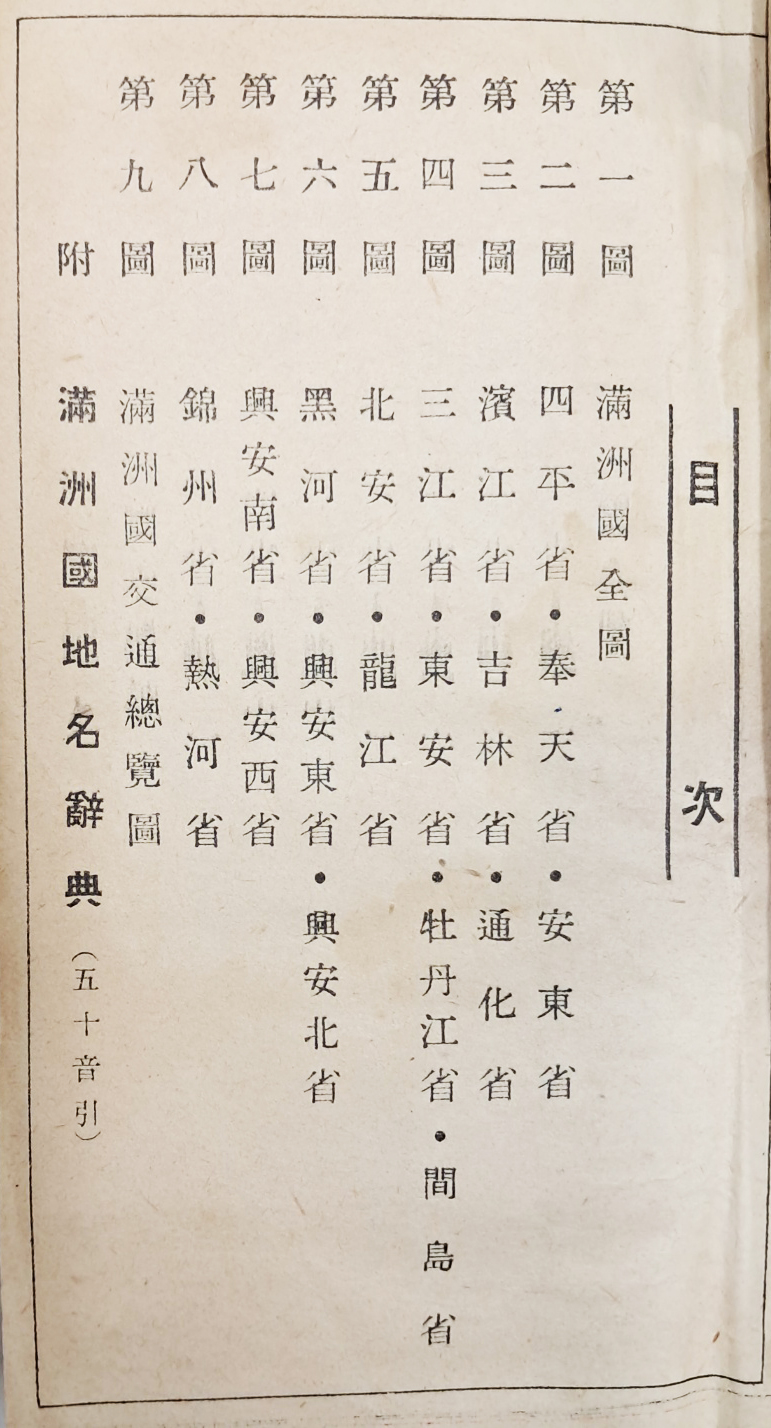 目次
第一圖 滿洲國全圖
第二圖 四平省・奉天省・安東省
第三圖 濱江省・吉林省・通化省
第四圖 三江省・東安省・牡丹江省・間島省
第五圖 北安省・龍江省
第六圖 黑河省・興安東省・興安北省
第七圖 興安南省・興安西省
第八圖 錦州省・熱河省
第九圖 滿洲國交通總覽圖
附 滿洲國地名辭典（五十音引）